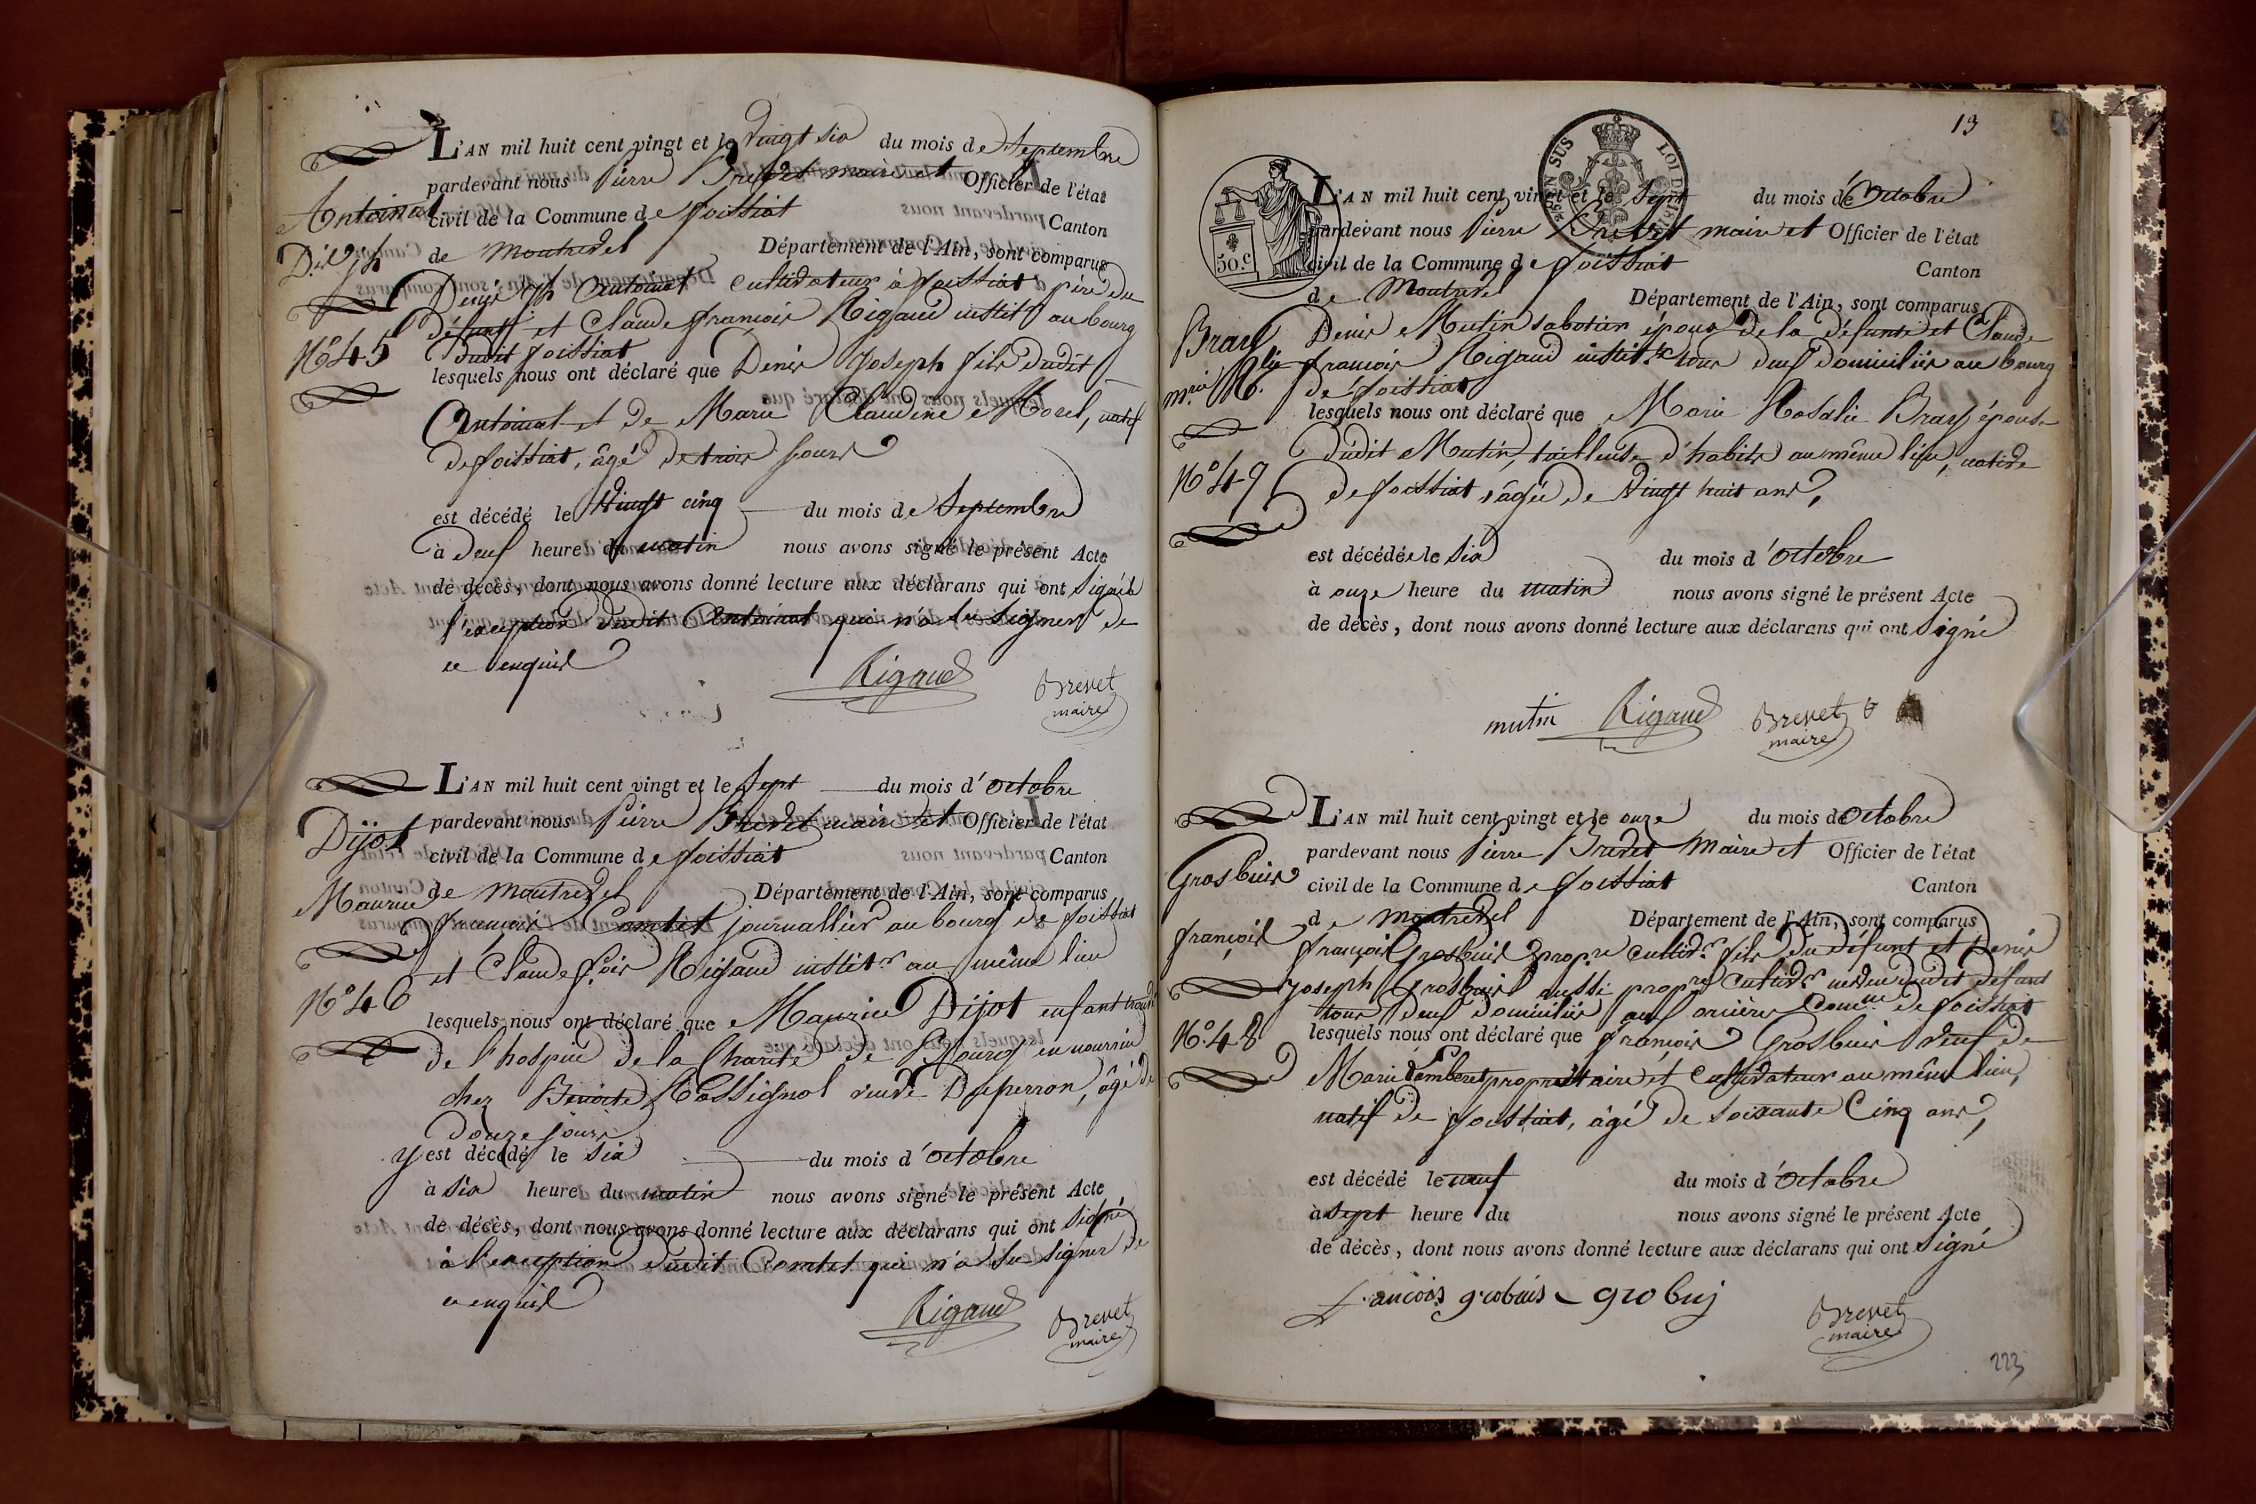 L'AN mil huit cent vingt et le Vingt six du mois de Septembre
pardevant nous Pierre Brevet maire et Officier de l'état
civil de la Commune de foissiat Canton
de Montrevel Département de l'Ain, sont comparus
Denis Jh Antoinat cultivateur à foissiat père du
défunt et Claude francois Rigaud instit.r au bourg
dudit foissiat
lesquels nous ont déclaré que Denis Joseph fils dudit
Antoinat et de Marie Claudine Morel, natif
de foissiat, âgé de trois jours
est décédé le Vingt cinq du mois de Septembre
à deux heure du matin nous avons signé le présent Acte
de décès, dont nous avons donné lecture aux déclarans qui ont signé à
l'exception dudit Antoinat qui n'a su signer de
ce enquis
Rigaud Brevet
maire
Antoinat
Dis Jh
N.º 45
L'AN mil huit cent vingt et le Sept du mois d'octobre
pardevant nous Pierre Brevet maire et Officier de l'état
civil de la Commune de foissiat Canton
de Montrevel Département de l'Ain, sont comparus
francois Comtet journallier au bourg de foissiat
et Claude f.cois Rigaud instit.r au même lieu
lesquels nous ont déclaré que Maurice Dijot enfant trouvé
de l'hospice de la Charité de Bourg en nourrice
chez Benoite Cassignol veuve Duperron, âgé de
douze jours
y est décédé le Six du mois d'octobre
à Six heure du matin nous avons signé le présent Acte
de décès, dont nous avons donné lecture aux déclarans qui ont Signé
à l'exception dudit Comtet qui n'a su signer de
ce enquis
Rigaud Brevet
maire
Dijot
Maurice
N.º 46
13
TIMBRE EN SUS LOI DE 1816
50.c
L'AN mil huit cent vingt et le Sept du mois d'Octobre
pardevant nous Pierre Brevet maire et Officier de l'état
civil de la Commune de foissiat Canton
de Montrevel Département de l'Ain, sont comparus
Denis Mutin sabotier époux de la défunte et Claude
francois Rigaud instit.r tous deux domiciliés au bourg
de foissiat
lesquels nous ont déclaré que Marie Rosalie Bray épouse
dudit Mutin, tailleuse d'habits au même lieu, native
de foissiat, âgée de Vingt huit ans,
est décédée le Six du mois d'octobre
à onze heure du matin nous avons signé le présent Acte
de décès, dont nous avons donné lecture aux déclarans qui ont Signé
mutin Rigaud Brevet
maire
Bray
M.rie R.lie
N.º 47
L'AN mil huit cent vingt et le onze du mois d'octobre
pardevant nous Pierre Brevet Maire et Officier de l'état
civil de la Commune de foissiat Canton
de Montrevel Département de l'Ain, sont comparus
françois Grosbuis prop.re cultiv.r fils du défunt et Denis
Joseph Grosbuis aussi prop.re cultiv.r neveu dudit défunt
tous deux domiciliés aux orières Com.ne de foissiat
lesquels nous ont déclaré que françois Grosbuis veuf de
Marie Temberet propriétaire et cultivateur au même lieu,
natif de foissiat, âgé de soixante Cinq ans,
est décédé le neuf du mois d'Octobre
à sept heure du nous avons signé le présent Acte
de décès, dont nous avons donné lecture aux déclarans qui ont Signé
francois grobuis grobuij
Brevet
maire
Grosbuis
françois
N.º 48
223